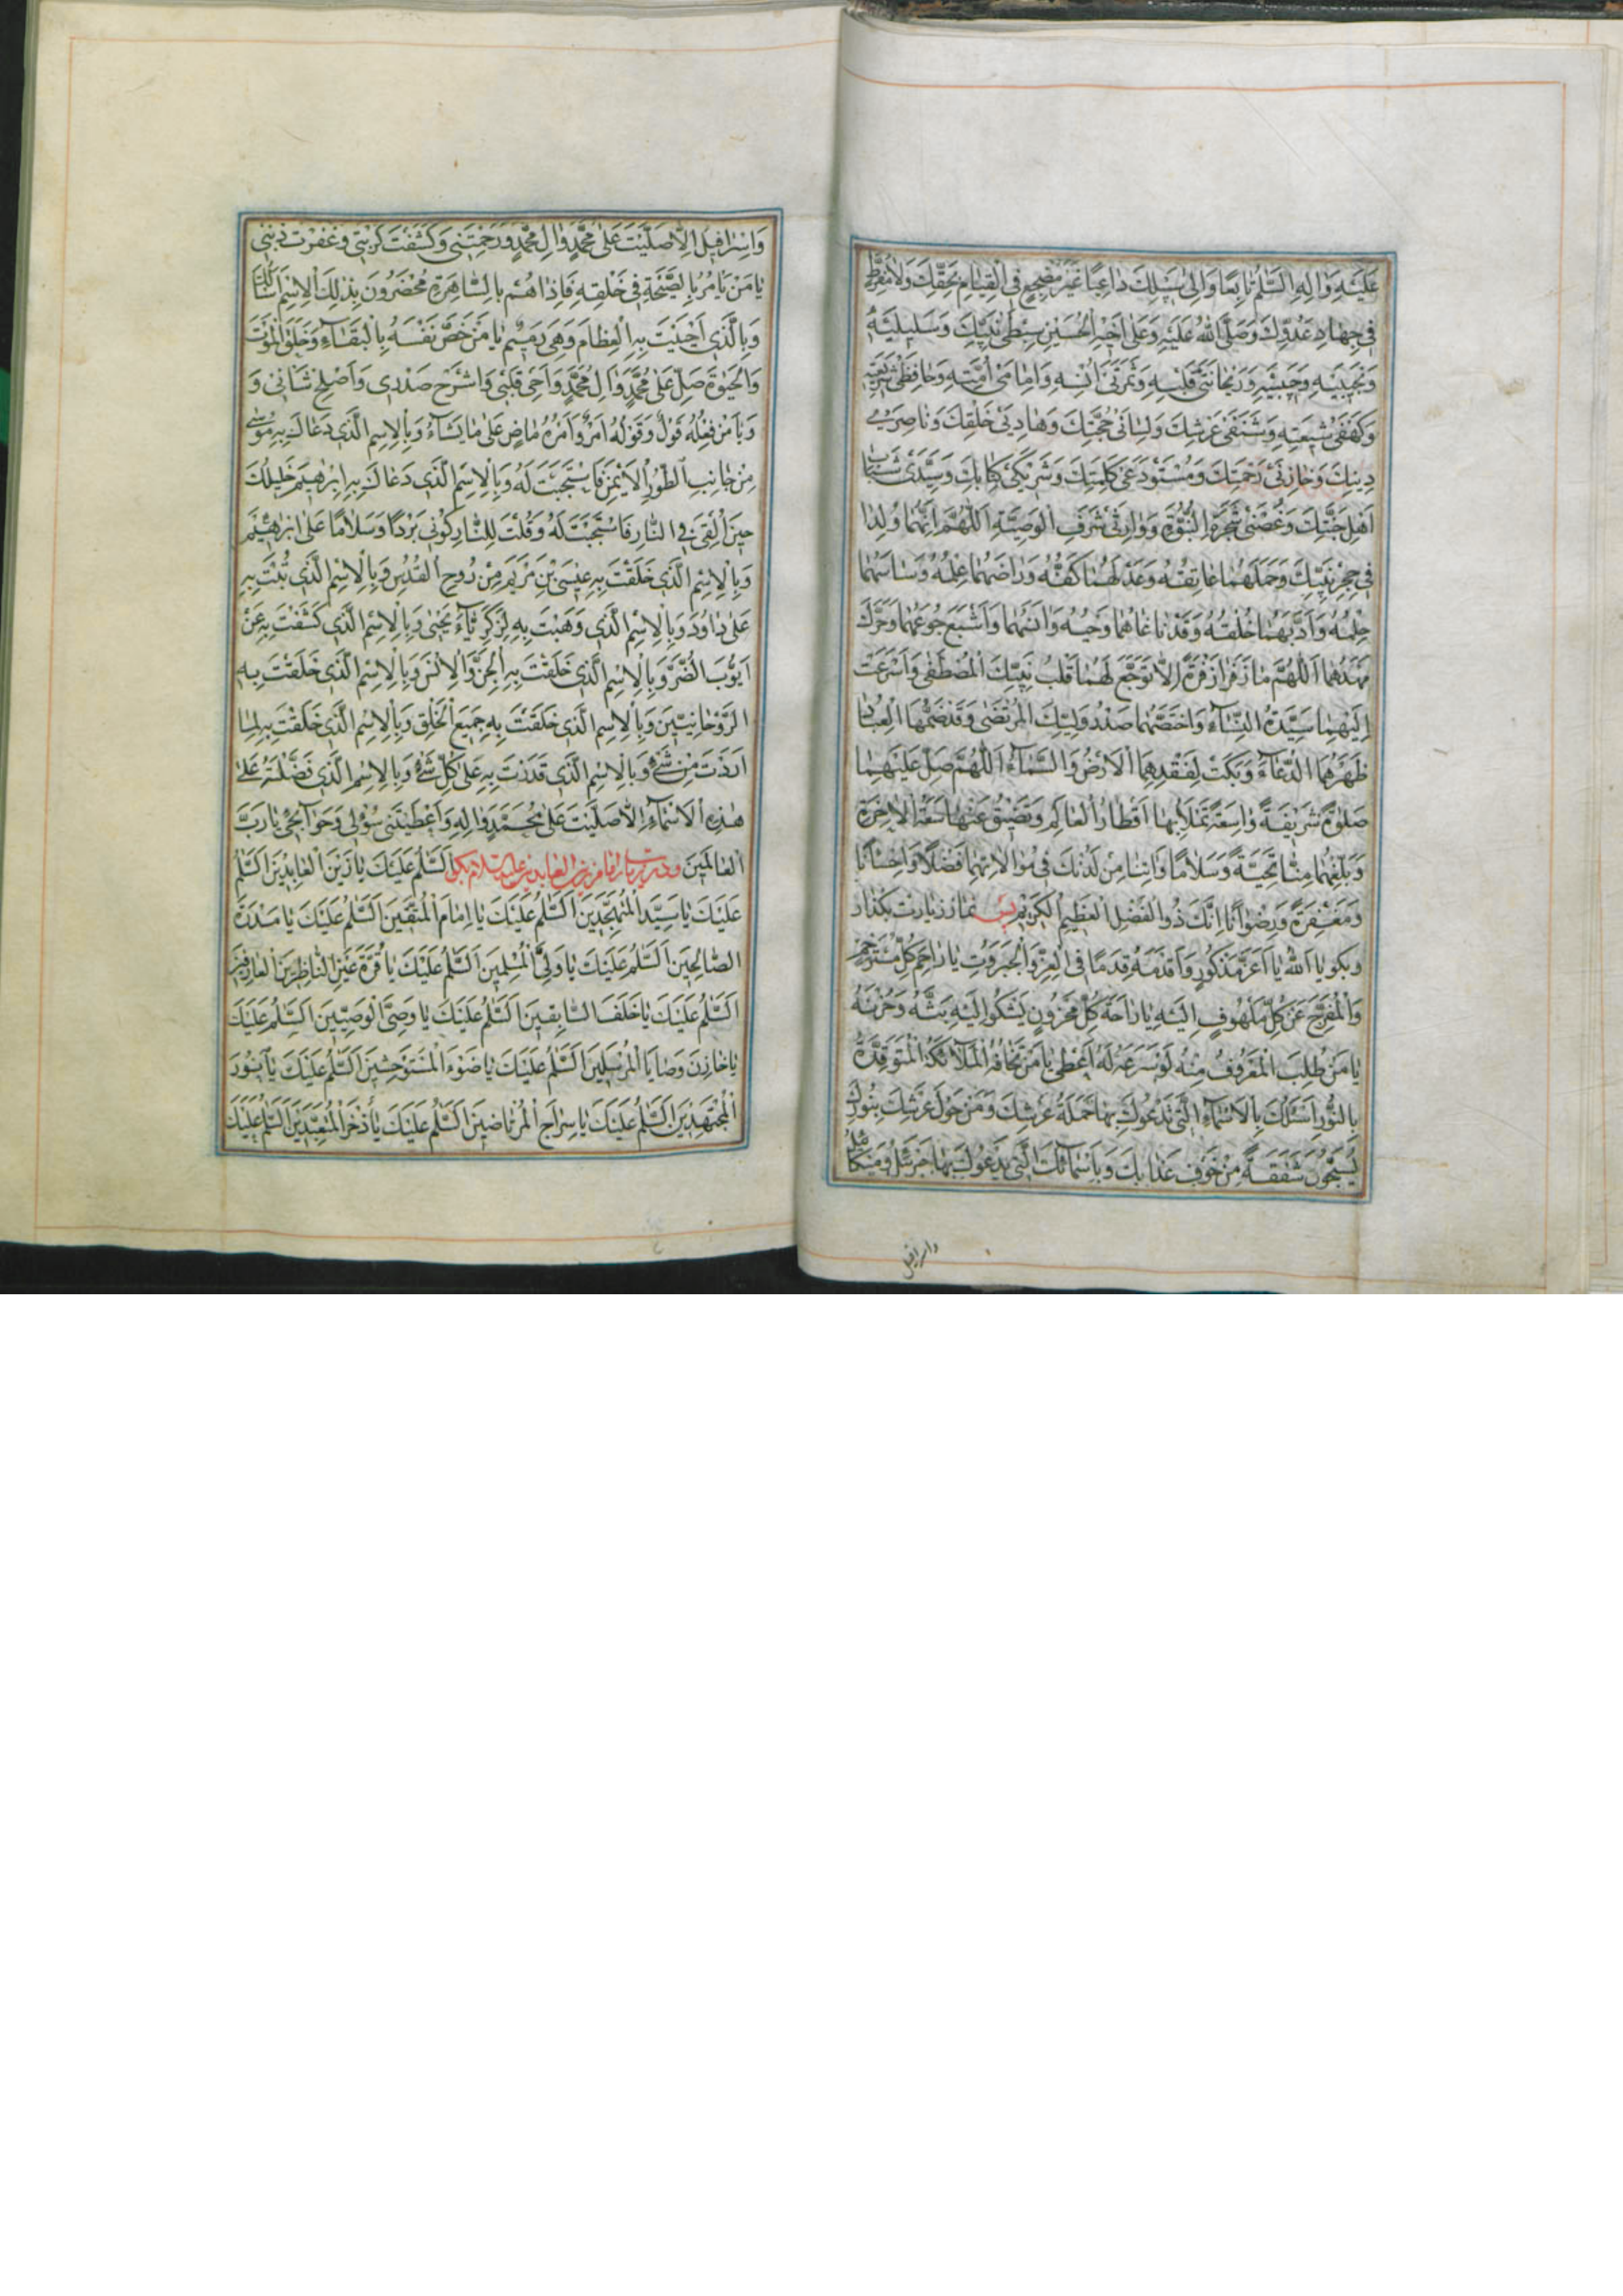 عَلَيْهِ وَاٰلِهِ السَّلٰمُ تٰابِعًا وَاِلىٰ سَبٖيلِكَ دٰاعِيًا غَيْرَ مُضْجِعٍ فِي الْقِيٰامِ بِحَقِّكَ وَلاٰ مُفَرِّطٍ
فٖي جِهٰادِ عَدُوِّكَ وَصَلَّى اللّٰهُ عَلَيْهِ وَعَلىٰ اَخٖيهِ الْحُسَيْنِ سِبْطَىْ نَبِيِّكَ وَسَلٖيلَيْهِ
وَنَجٖيبَيْهِ وَحَبٖيبَيْهِ وَرَيْحٰانَتَىْ قَلْبِهِ وَثَمَرَتَىْ اُنْسِهِ وَاِمٰامَىْ اُمَّتِهِ وَحٰافِظَىْ شَرٖيعَتِهِ
وَكَهْفَىْ شٖيعَتِهِ وَشَنَفَىْ عَرْشِكَ وَلِسٰانَىْ حُجَّتِكَ وَهٰادِيَىْ خَلْقِكَ وَنٰاصِرَىْ
دٖينِكَ وَخٰازِنَىْ رَحْمَتِكَ وَمُسْتَوْدَعَىْ كَلِمَتِكَ وَشَرٖيكَىْ كِتٰابِكَ وَسَيِّدَىْ شَبٰابِ
اَهْلِ جَنَّتِكَ وَغُصْنَىْ شَجَرَةِ النُّبُوَّةِ وَوٰارِثَىْ شَرَفِ الْوَصِيَّةِ اَللّٰهُمَّ اِنَّهُمٰا وُلِدٰا
فٖي حِجْرِ نَبِيِّكَ وَحَمَلَهُمٰا عٰاتِقُهُ وَعَدَلَهُمٰا كَفُّهُ وَرٰاضَهُمٰا عِلْمُهُ وَسٰاسَهُمٰا
حِلْمُهُ وَاَدَّبَهُمٰا خُلْقُهُ وَقَدْ نٰاغٰاهُمٰا وَحْيُهُ وَاٰنَسَهُمٰا وَاَشْبَعَ جُوعَهُمٰا وَحَرَّكَ
مَهْدَهُمٰا اَللّٰهُمَّ مٰا زَفَرٰا زَفْرَةً اِلاّٰ تَوَجَّعَ لَهُمٰا قَلْبُ نَبِيِّكَ الْمُصْطَفىٰ وَاَسْرَعَتْ
اِلَيْهِمٰا سَيِّدَةُ النِّسٰاءِ وَاخْتَصَّهُمٰا صَدْرُ وَلِيِّكَ الْمُرْتَضىٰ وَقَدْ ضَمَّهُمَا الْعَبٰا
ظَهَرَ هُمَا الدُّعٰاءُ وَبَكَتْ لِفَقْدِهِمَا الْاَرْضُ وَالسَّمٰاءُ اَللّٰهُمَّ صَلِّ عَلَيْهِمٰا
صَلٰوةً شَرٖيفَةً وٰاسِعَةً تَمْلَأُ بِهٰا اَقْطٰارُ الْعٰالَمِ وَتَضٖيقُ عَنْهٰا سَعَةُ الْاٰخِرَةِ
وَبَلِّغْهُمٰا مِنّٰا تَحِيَّةً وَسَلاٰمًا وَاٰتِنٰا مِنْ لَدُنْكَ فٖي مُوٰالاٰتِهِمٰا فَضْلاً وَاِحْسٰانًا
وَمَغْفِرَةً وَرِضْوٰانًا اِنَّكَ ذُو الْفَضْلِ الْعَظٖيمِ الْكَرٖيمِ پس نماز زيارت بكذار
وبكو يٰا اَللّٰهُ يٰا اَعَزَّ مَذْكُورٍ وَاَقْدَمَهُ قِدَمًا فِي الْعِزِّ وَالْجَبَرُوتِ يٰا رٰاحِمَ كُلِّ مُسْتَرْحِمٍ
وَالْمُفَرِّجَ عَنْ كُلِّ مَلْهُوفٍ اِلَيْهِ يٰا رٰاحَةَ كُلِّ مَحْزُونٍ يَشْكُو اِلَيْهِ بَثَّهُ وَحُزْنَهُ
يٰا مَنْ طُلِبَ الْمَعْرُوفُ مِنْهُ لَوْ سَرْعَهُ لَهُ اَعْطىٰ يٰا مَنْ تَخٰافُهُ الْمَلاٰئِكَةُ الْمُتَوَقِّدَةُ
بِالنُّورِ اَسْئَلُكَ بِالْاَسْمٰاءِ الَّتٖي تَدْعُوكَ بِهٰا حَمَلَةُ عَرْشِكَ وَمَنْ حَوْلَ عَرْشِكَ بِنُورِكَ
يُسَبِّحُونَ شَفَقَةً مِنْ خَوْفِ عَذٰابِكَ وَبِاَسْمٰائِكَ الَّتٖي يَدْعُوكَ بِهٰا جَبْرَئٖيلُ وَمٖيكٰائٖيلُ
واسرافيل
وَاِسْرٰافٖيلُ اِلاّٰ صَلَّيْتَ عَلىٰ مُحَمَّدٍ وَاٰلِ مُحَمَّدٍ وَرَحِمْتَنٖي وَكَشَفْتَ كُرْبَتٖي وَغَفَرْتَ ذَنْبٖي
يٰا مَنْ يَأْمُرُ بِالصَّيْحَةِ فٖي خَلْقِهِ فَاِذٰا هُمْ بِالسّٰاهِرَةِ مُحْضَرُونَ بِذٰلِكَ الْاِسْمِ اَسْأَلُكَ
وَبِالَّذٖي اَحْيَيْتَ بِهِ الْعِظٰامَ وَهِىَ رَمٖيمٌ يٰا مَنْ خَصَّ نَفْسَهُ بِالْبَقٰاءِ وَخَلَقَ الْمَوْتَ
وَالْحَيٰوةَ صَلِّ عَلىٰ مُحَمَّدٍ وَاٰلِ مُحَمَّدٍ وَاَحْىِ قَلْبٖي وَاشْرَحْ صَدْرٖي وَاَصْلِحْ شَأْنٖي وَ
وَيٰا مَنْ فِعْلُهُ قَوْلٌ وَقَوْلُهُ اَمْرٌ وَاَمْرُهُ مٰاضٍ عَلىٰ مٰا يَشٰاءُ وَبِالْاِسْمِ الَّذٖي دَعٰاكَ بِهِ مُوسىٰ
مِنْ جٰانِبِ الطُّورِ الْاَيْمَنِ فَاسْتَجَبْتَ لَهُ وَبِالْاِسْمِ الَّذٖي دَعٰاكَ بِهِ اِبْرٰهٖيمُ خَلٖيلُكَ
حٖينَ اُلْقِىَ فِي النّٰارِ فَاسْتَجَبْتَ لَهُ وَقُلْتَ لِلنّٰارِ كُونٖي بَرْدًا وَسَلاٰمًا عَلىٰ اِبْرٰهٖيمَ
وَبِالْاِسْمِ الَّذٖي خَلَقْتَ بِهِ عٖيسَى بْنَ مَرْيَمَ مِنْ رُوحِ الْقُدُسِ وَبِالْاِسْمِ الَّذٖي تُبْتَ بِهِ
عَلىٰ دٰاوُدَ وَبِالْاِسْمِ الَّذٖي وَهَبْتَ بِهِ لِزَكَرِيّٰاءَ يَحْيىٰ وَبِالْاِسْمِ الَّذٖي كَشَفْتَ بِهِ عَنْ
اَيُّوبَ الضُّرَّ وَبِالْاِسْمِ الَّذٖي خَلَقْتَ بِهِ الْجِنَّ وَالْاِنْسَ وَبِالْاِسْمِ الَّذٖي خَلَقْتَ بِهِ
الرَّوْحٰانِيّٖينَ وَبِالْاِسْمِ الَّذٖي خَلَقْتَ بِهِ جَمٖيعَ الْخَلْقِ وَبِالْاِسْمِ الَّذٖي خَلَقْتَ بِهِ لِمٰا
اَرَدْتَ مِنْ شَىْءٍ وَبِالْاِسْمِ الَّذٖي قَدَرْتَ بِهِ عَلىٰ كُلِّ شَىْءٍ وَبِالْاِسْمِ الَّذٖي فَضَّلْتَهُ عَلىٰ
هٰذِهِ الْاَسْمٰاءِ اِلاّٰ صَلَّيْتَ عَلىٰ مُحَمَّدٍ وَاٰلِهِ وَاَعْطَيْتَنٖي سُؤْلٖي وَحَوٰائِجٖي يٰا رَبَّ
الْعٰالَمٖينَ ودر زيارت امام زين العابدين عليه السلام بكو اَلسَّلٰمُ عَلَيْكَ يٰا زَيْنَ الْعٰابِدٖينَ اَلسَّلٰمُ
عَلَيْكَ يٰا سَيِّدَ الْمُتَهَجِّدٖينَ اَلسَّلٰمُ عَلَيْكَ يٰا اِمٰامَ الْمُتَّقٖينَ اَلسَّلٰمُ عَلَيْكَ يٰا مَدْرَةَ
الصّٰالِحٖينَ اَلسَّلٰمُ عَلَيْكَ يٰا وَلِىَّ الْمُسْلِمٖينَ اَلسَّلٰمُ عَلَيْكَ يٰا قُرَّةَ عَيْنِ النّٰاظِرٖينَ الْعٰارِفٖينَ
اَلسَّلٰمُ عَلَيْكَ يٰا خَلَفَ السّٰابِقٖينَ اَلسَّلٰمُ عَلَيْكَ يٰا وَصِىَّ الْوَصِيّٖينَ اَلسَّلٰمُ عَلَيْكَ
يٰا خٰازِنَ وَصٰايَا الْمُرْسَلٖينَ اَلسَّلٰمُ عَلَيْكَ يٰا ضَوْءَ الْمُسْتَوْحِشٖينَ اَلسَّلٰمُ عَلَيْكَ يٰا نُورَ
الْمُجْتَهِدٖينَ اَلسَّلٰمُ عَلَيْكَ يٰا سِرٰاجَ الْمُرْتٰاضٖينَ اَلسَّلٰمُ عَلَيْكَ يٰا ذُخْرَ الْمُتَعَبِّدٖينَ اَلسَّلٰمُ عَلَيْكَ